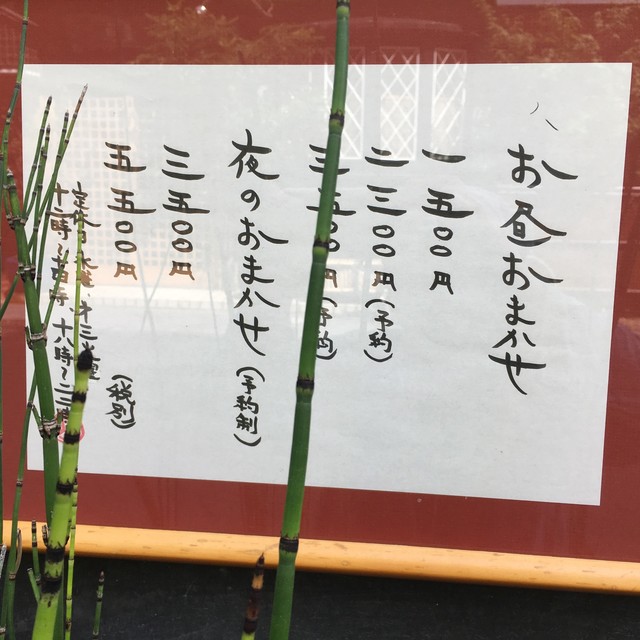 お昼おまかせ
一五〇〇円
二三〇〇円(予約)
三五〇〇円(予約)
夜のおまかせ(予約制)
三五〇〇円
五五〇〇円(税別)
定休日
十二時〜 十八時〜二